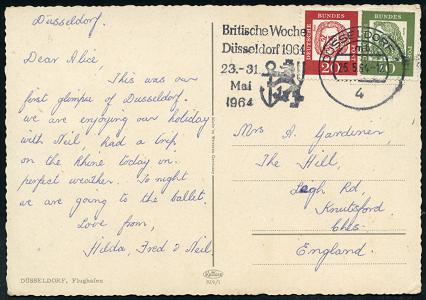 Düsseldorf.
Dear Alice,
This was our
first glimpse of Dusseldorf.
we are enjoying our holiday
with Neil, had a trip,
on the Rhine today in
perfect weather. To night
we are going to the ballet.
Love from,
Hilda, Fred & Neil
DÜSSELDORF, Flughafen
Britische Woche
Düsseldorf 1964
23.-31.
Mai
1964
DEUTSCHE
BUNDES
20
DEUTSCHE
BUNDES
DÜSSELDORF
25.5.64
4
Mrs A. Gardiner,
The Hill,
Leigh Rd,
Knutsford
Ches.
England.